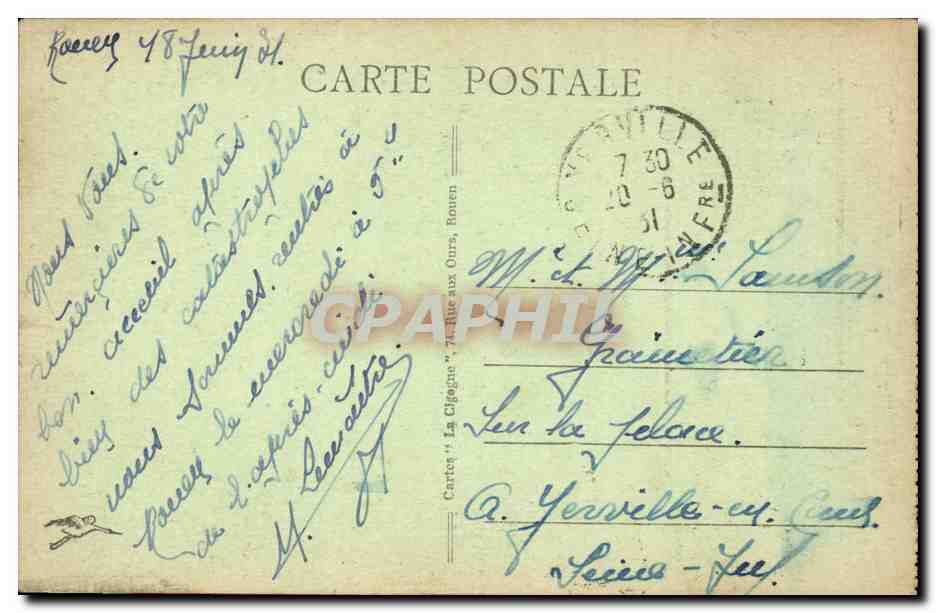 Rouen 18 Juin 31.
CARTE POSTALE
Nous vous
remercions de votre
bon accueil après
bien des catastrophes
nous sommes rentrés à
Rouen le mercredi à 5"
de l'après-midi
H. Lemaître
Cartes "La Cigogne", 74, Rue aux Ours, Rouen
YERVILLE
7 30
20 -6
31
INFRE
Mr et Mme Samson
Grainetier
Sur la place.
A. Yerville-en-Caux.
Seine-Inf
CPAPHIL